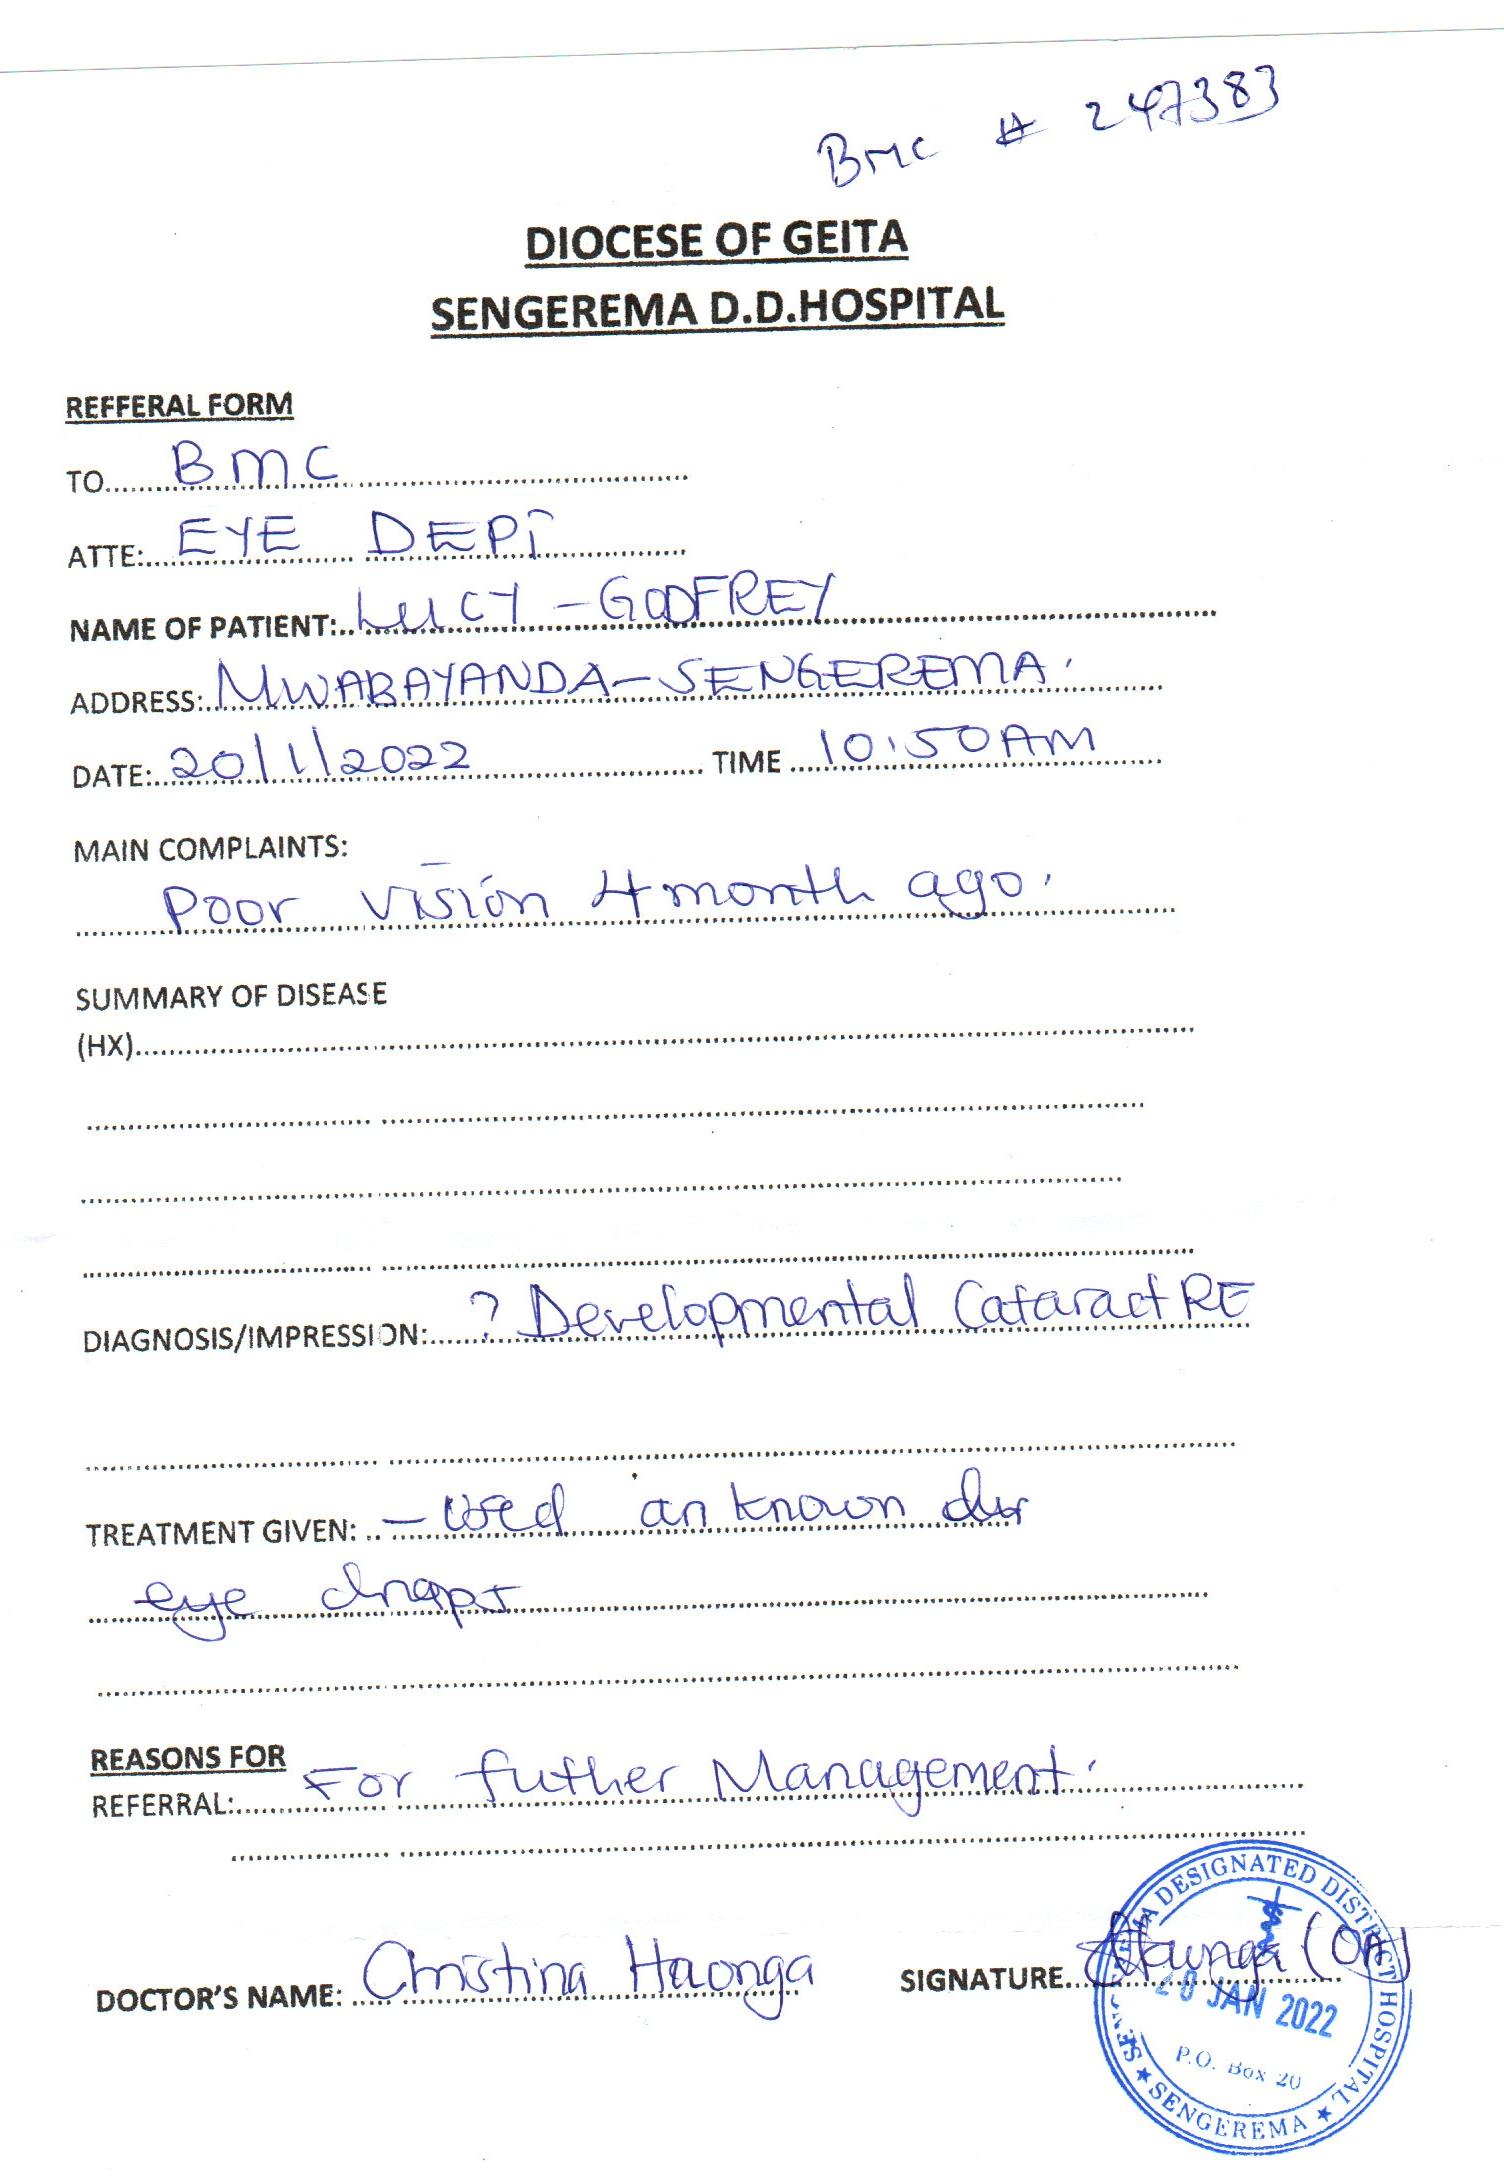 BMC # 247383
DIOCESE OF GEITA
SENGEREMA D.D.HOSPITAL
REFFERAL FORM
TO..... BMC .....
ATTE:..... EYE DEPT .....
NAME OF PATIENT:..... LUCY - GODFREY .....
ADDRESS:..... MWABAYANDA - SENGEREMA. .....
DATE:..... 20/1/2022 ..... TIME ..... 10:50AM .....
MAIN COMPLAINTS:
Poor vision 4 month ago.
SUMMARY OF DISEASE
(HX).....
DIAGNOSIS/IMPRESSION:..... ? Developmental Cataract RE
TREATMENT GIVEN: ..... - Used an known
eye drops
REASONS FOR
REFERRAL:..... For futher Management.
DOCTOR'S NAME: ..... Christina Haonga SIGNATURE..... Haonga (OA)
SENGEREMA DESIGNATED DISTRICT HOSPITAL
20 JAN 2022
P.O. Box 20
★ SENGEREMA ★